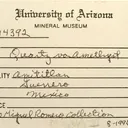 University of Arizona
MINERAL MUSEUM
14392
Quartz var Amethyst
LITY Amatitlan
Guerrero
Mexico
Miguel Romero Collection